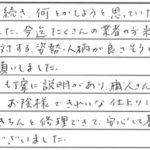 続き、何とかしようと思っていた
した。今迄たくさんの業者の方
対する、姿勢、人柄が良さそう
願いしました。
も丁寧に説明があり、職人さん
お陰様できれいな仕上り
きちんと修理できて、安心して
ございました。